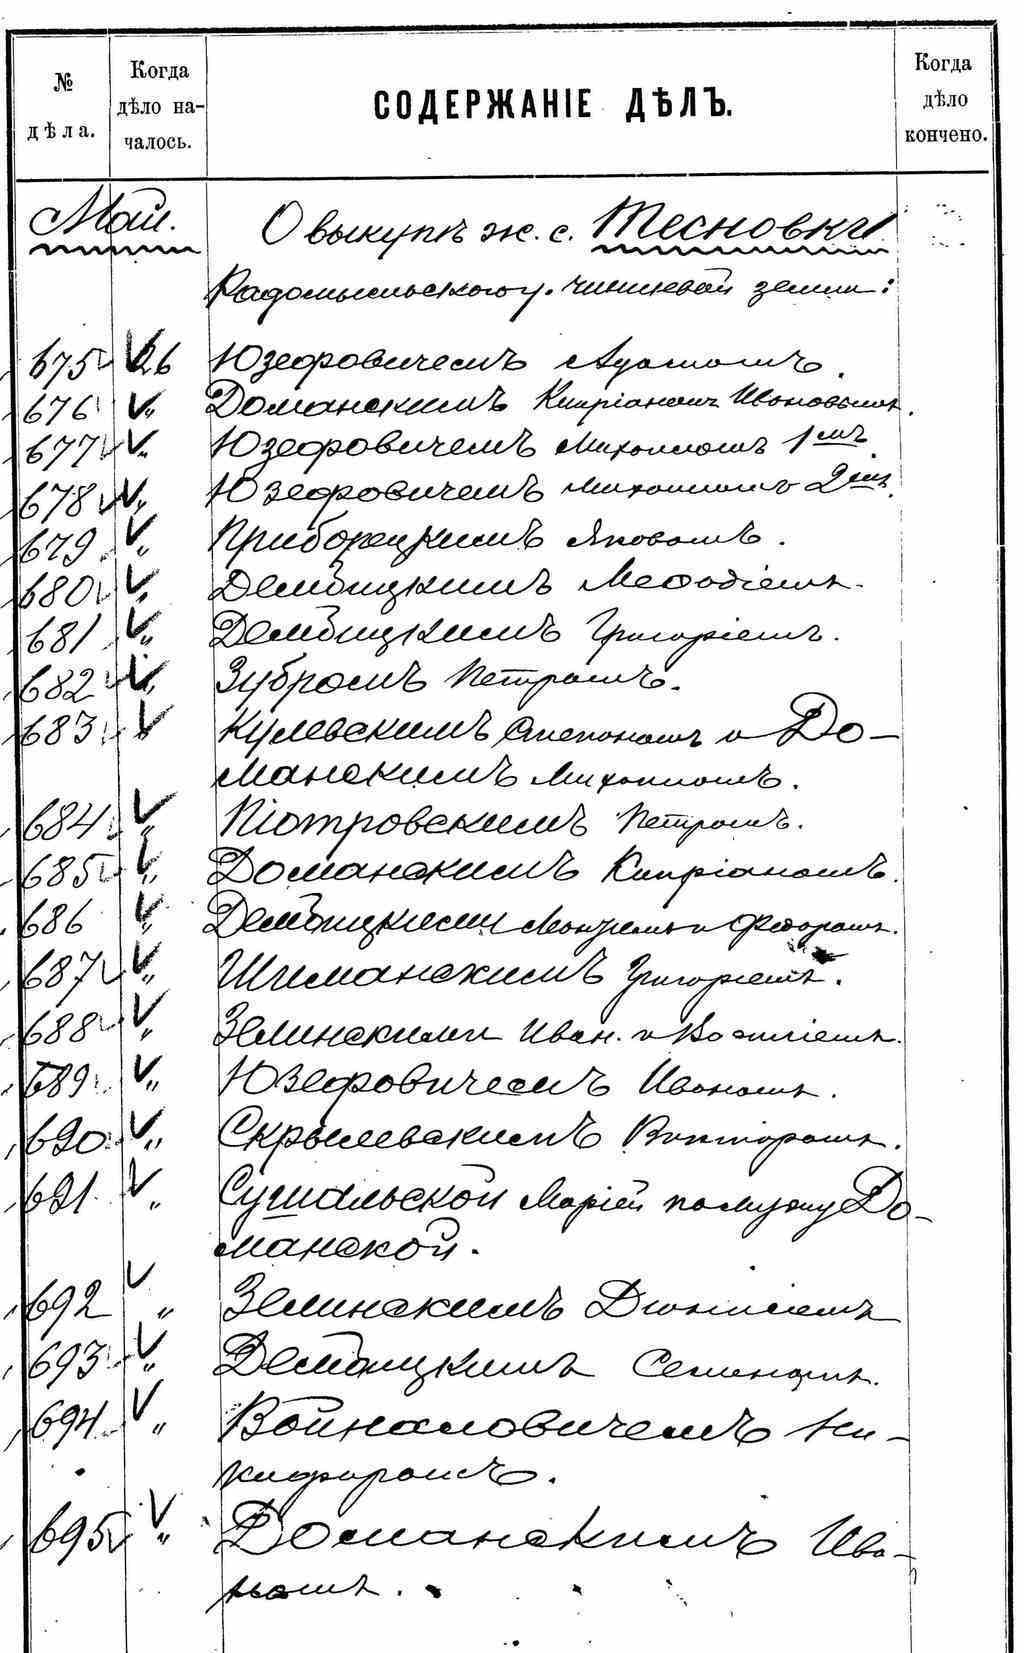 № дѣла.
Когда дѣло началось.
СОДЕРЖАНІЕ ДѢЛЪ.
Когда дѣло кончено.
Май. О выкупѣ ж. с. Тесновки
Радомысльскаго у. чиншевой земли:
675 26 Юзефровичемъ Адамомъ.
676 „ Доманскимъ Кипріаномъ Ивановымъ.
677 „ Юзефровичемъ Михаиломъ 1мъ
678 „ Юзефровичемъ Михаиломъ 2мъ.
679 „ Приборецкимъ Яковомъ.
680 „ Дембицкимъ Мефодіемъ.
681 „ Дембицкимъ Григоріемъ.
682 „ Зубромъ Петромъ.
683 „ Кулевскимъ Степаномъ и До-
манскимъ Михаиломъ.
684 „ Піотровскимъ Петромъ.
685 „ Доманскимъ Кипріаномъ.
686 „ Дембицкими и Федоромъ.
687 „ Шиманскимъ Григоріемъ.
688 „ Зелинскими Иван. и Василіемъ.
689 „ Юзефровичемъ Иваномъ.
690 „ Скрылевскимъ Викторомъ.
691 „ Марией по мужу До-
манской.
692 „ Зелинскимъ Діонисіемъ
693 „ Дембицкимъ Семеномъ.
694 „ Войналовичемъ Ни-
кифоромъ.
695 „ Доманскимъ Ива-
номъ.